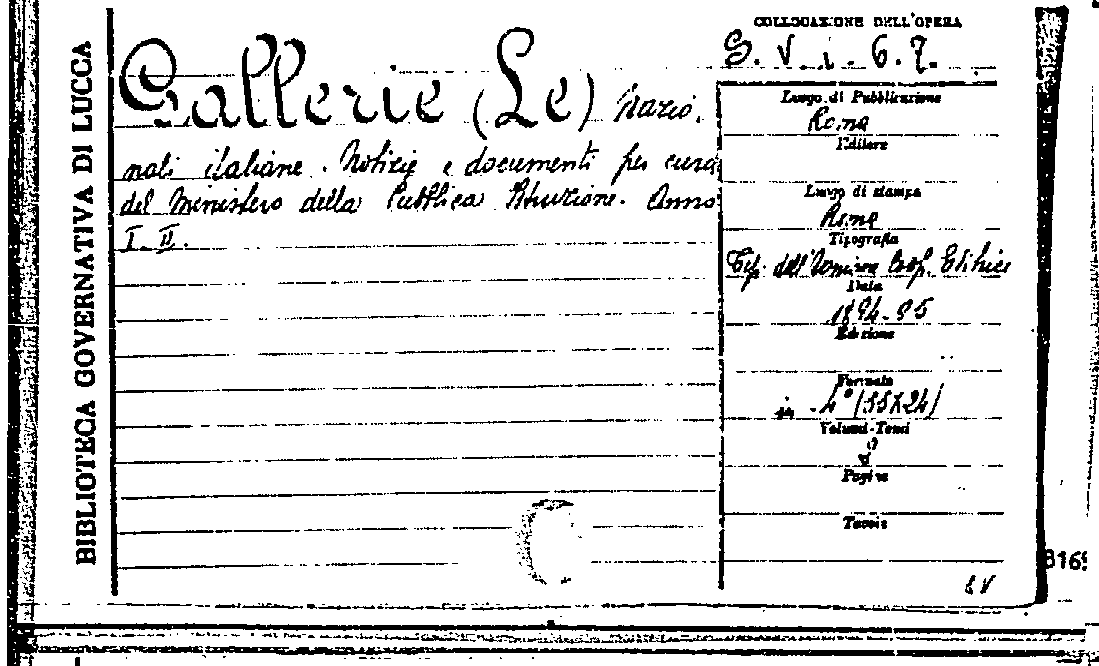 BIBLIOTECA GOVERNATIVA DI LUCCA
COLLOCAZIONE DELL'OPERA
S. V. i. 6. 7.
Gallerie (Le) Nazio,
nali italiane. Notizie e documenti per cura
del Ministero della Pubblica Istruzione. Anno
I. II.
Luogo di Pubblicazione
Roma
Editore
Luogo di stampa
Roma
Tipografia
Tip. dell'Unione Coop. Editrice
Data
1894-95
Edizione
Formato
in - 4° (35X24)
Volumi-Tomi
2
Pagine
Tavole
SV
3169